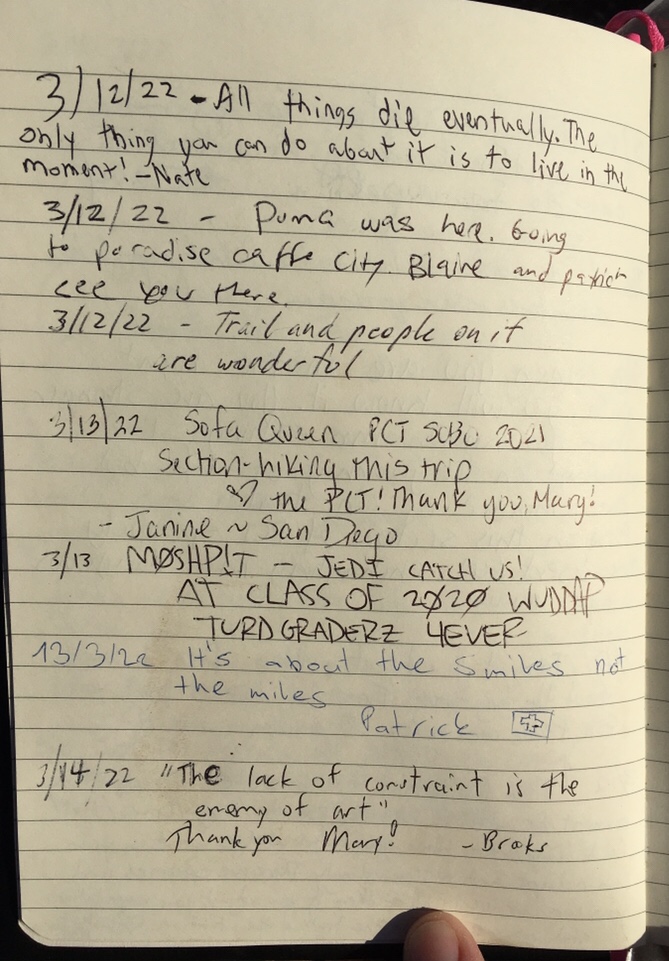 3/12/22 - All things die eventually. The
only thing you can do about it is to live in the
moment! - Nate
3/12/22 - Puma was here. Going
to paradise caffe city. Blaine and patrick
see you there.
3/12/22 - Trail and people on it
are wonderful
3/13/22 Sofa Queen PCT SOBO 2021
Section-hiking this trip
♡ the PCT! Thank you, Mary!
- Janine ~ San Diego
3/13 MØSHP!T - JEDI CATCH US!
AT CLASS OF 2Ø2Ø WUDDAP
TURDGRADERZ 4EVER
13/3/22 It's about the smiles not
the miles
Patrick
3/14/22 "The lack of constraint is the
enemy of art"
Thank you Mary! - Broks